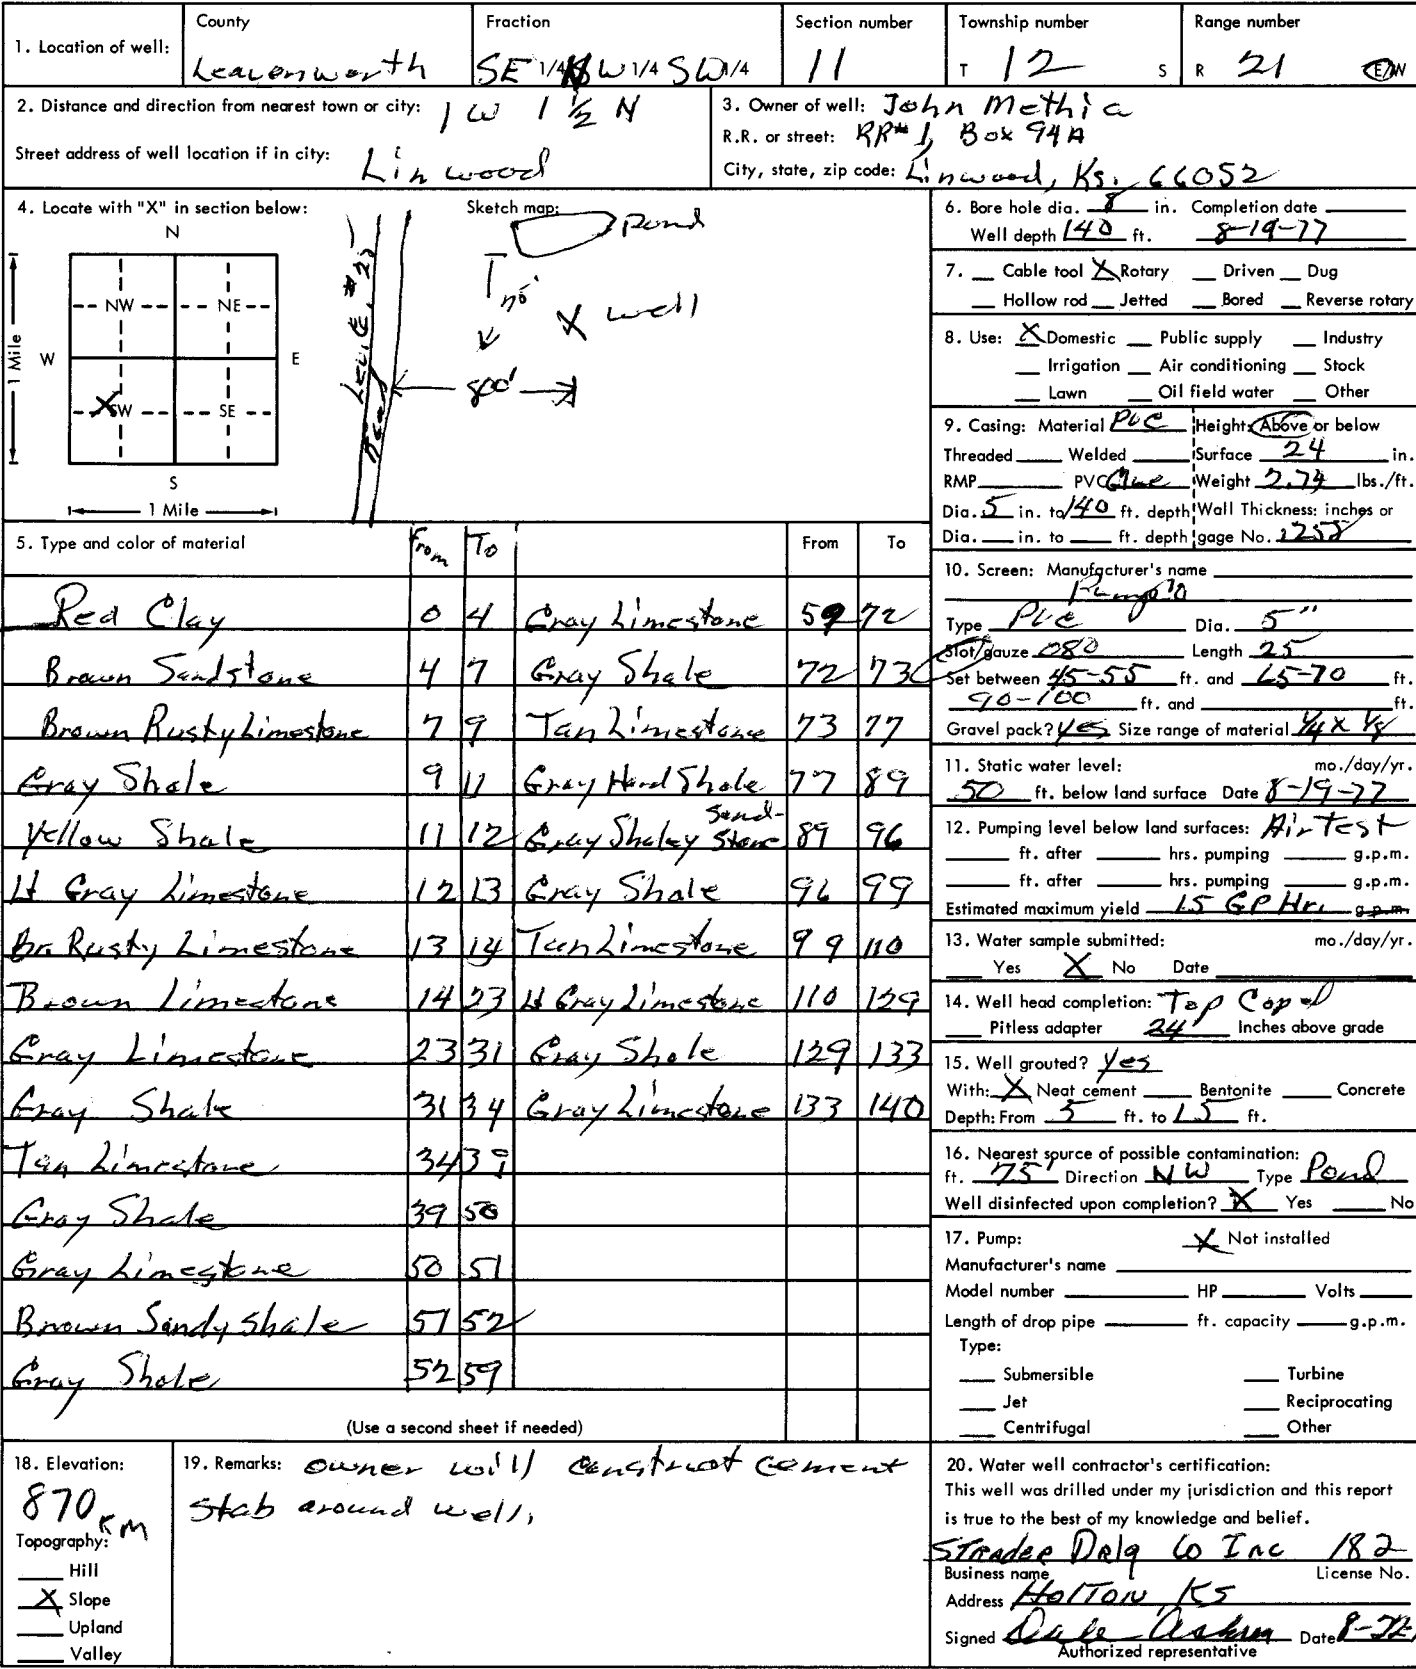 1. Location of well:
County
Leavenworth
Fraction
SE 1/4 NW 1/4 SW 1/4
Section number
11
Township number
T 12 S
Range number
R 21 E/W
2. Distance and direction from nearest town or city: 1 W 1 1/2 N
Street address of well location if in city: Linwood
3. Owner of well: John Methia
R.R. or street: RR# 1, Box 94A
City, state, zip code: Linwood, Ks. 66052
4. Locate with "X" in section below:
N
NW NE
W E
X SW SE
S
1 Mile
1 Mile
Sketch map:
Pond
X well
800'
Road
6. Bore hole dia. 8 in. Completion date
Well depth 140 ft. 8-19-77
7. Cable tool X Rotary Driven Dug
Hollow rod Jetted Bored Reverse rotary
8. Use: X Domestic Public supply Industry
Irrigation Air conditioning Stock
Lawn Oil field water Other
9. Casing: Material PVC Height: Above or below
Threaded Welded Surface 24 in.
RMP PVC Glue Weight 2.74 lbs./ft.
Dia. 5 in. to 140 ft. depth Wall Thickness: inches or
Dia. in. to ft. depth gage No.
10. Screen: Manufacturer's name
Type PVC Dia. 5"
Slot/gauze 080 Length 25
Set between 45-55 ft. and 65-70 ft.
90-100 ft. and ft.
Gravel pack? Yes Size range of material 1/4 x 1/8
11. Static water level: mo./day/yr.
50 ft. below land surface Date 8-19-77
12. Pumping level below land surfaces: Air Test
ft. after hrs. pumping g.p.m.
ft. after hrs. pumping g.p.m.
Estimated maximum yield 15 GPHr. g.p.m.
13. Water sample submitted: mo./day/yr.
Yes X No Date
14. Well head completion: Top Caped
Pitless adapter 24 Inches above grade
15. Well grouted? Yes
With: X Neat cement Bentonite Concrete
Depth: From 5 ft. to 15 ft.
16. Nearest source of possible contamination:
ft. 75' Direction NW Type Pond
Well disinfected upon completion? X Yes No
17. Pump: X Not installed
Manufacturer's name
Model number HP Volts
Length of drop pipe ft. capacity g.p.m.
Type:
Submersible Turbine
Jet Reciprocating
Centrifugal Other
5. Type and color of material From To From To
Red Clay 0 4 Gray Limestone 59 72
Brown Sandstone 4 7 Gray Shale 72 73
Brown Rusty Limestone 7 9 Tan Limestone 73 77
Gray Shale 9 11 Gray Hard Shale 77 89
Yellow Shale 11 12 Gray Shaley Sand-stone 89 96
Lt Gray Limestone 12 13 Gray Shale 96 99
Br. Rusty Limestone 13 14 Tan Limestone 99 110
Brown Limestone 14 23 Lt Gray Limestone 110 129
Gray Limestone 23 31 Gray Shale 129 133
Gray Shale 31 34 Gray Limestone 133 140
Tan Limestone 34 39
Gray Shale 39 50
Gray Limestone 50 51
Brown Sandy Shale 51 52
Gray Shale 52 59
(Use a second sheet if needed)
18. Elevation:
870 KM
Topography:
Hill
X Slope
Upland
Valley
19. Remarks: owner will construct cement
slab around well.
20. Water well contractor's certification:
This well was drilled under my jurisdiction and this report
is true to the best of my knowledge and belief.
Strader Drlg Co Inc 182
Business name License No.
Address Holton, KS
Signed Dale Date
Authorized representative